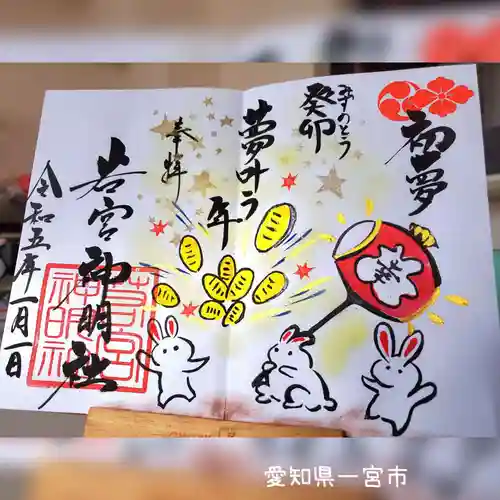 初夢
みずのとう
癸卯
夢叶う年
奉拝
若宮神明社
令和五年一月一日
若宮
神明社
愛知県一宮市